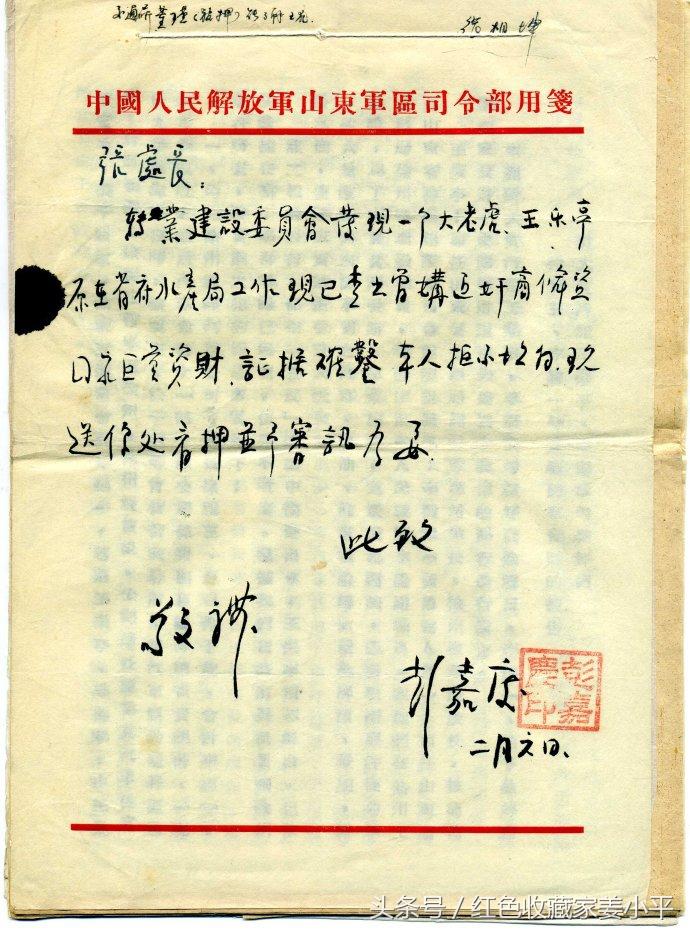 徐相坤
中國人民解放軍山東軍區司令部用箋
張處長：
轉業建設委員會發現一个大老虎、王乐亭
原在省府水產局工作現已查出曾媾迈奸商偷盜
國家巨資財、証據確鑿 本人拒不坦白、現
送你处看押並予審訊为要
此致
敬禮
彭嘉慶
彭嘉慶印
二月六日、
头条号／红色收藏家姜小平